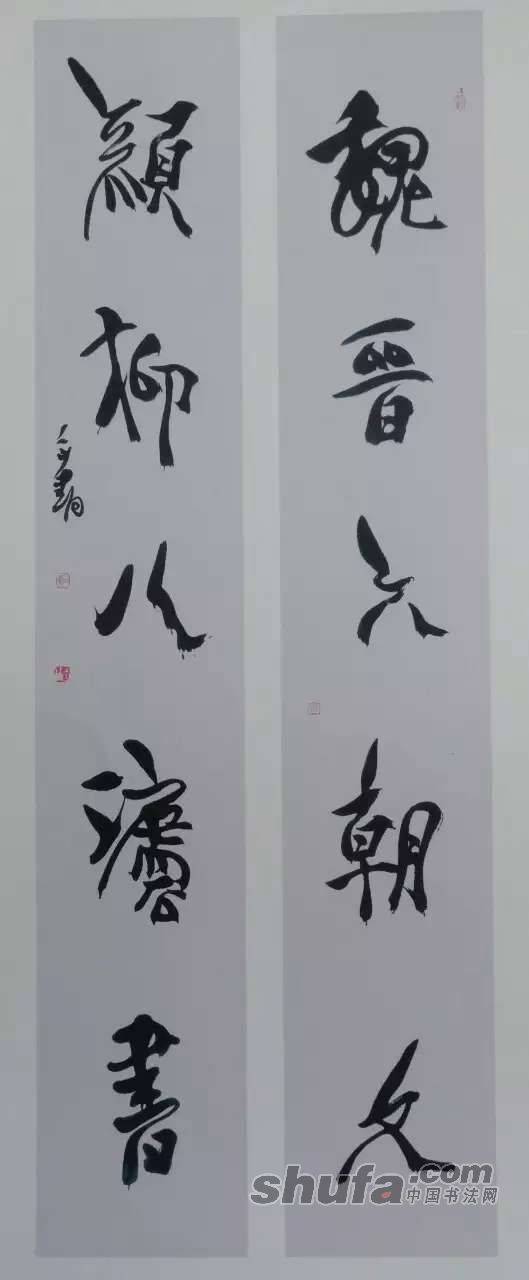 魏晉六朝文
顏柳八灋書
shufa.com
中国书法网